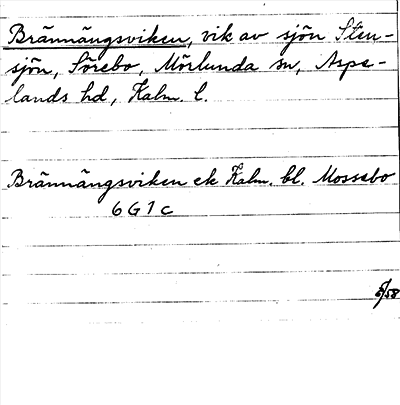 Brännängsviken, vik av sjön Sten-
sjön, Sörebo, Mörlunda sn, Aspe-
lands hd, Kalm. l.
Brännängsviken ek Kalm. bl. Mossebo
6 G 1 c
5/58